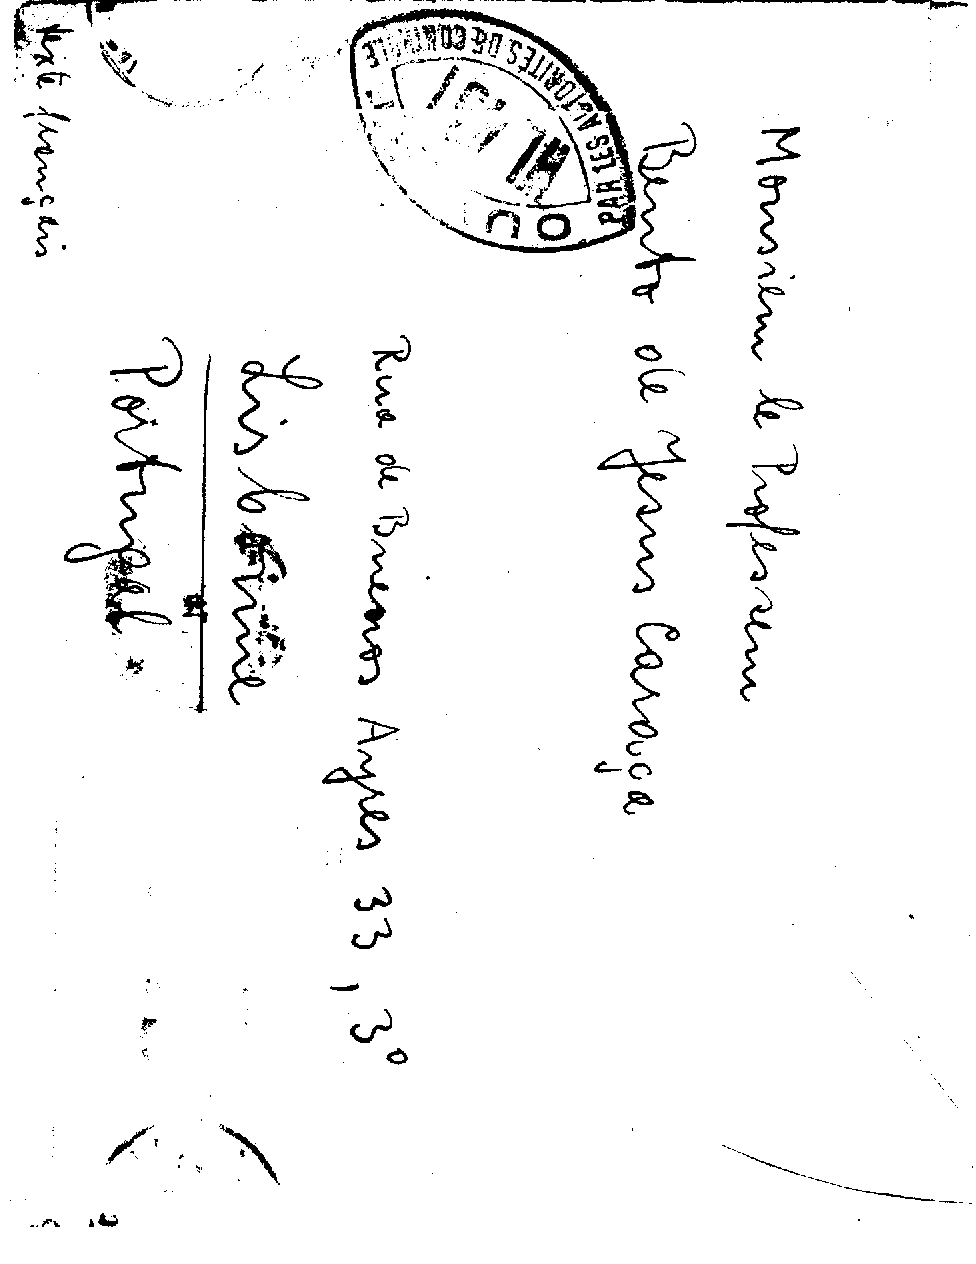 Monsieur le Professeur
Bento de Jesus Caraça
Rua de Buenos Ayres 33, 3º
Lisbonne
Portugal
texte français
PAR LES AUTORITÉS DE CONTRÔLE
OU